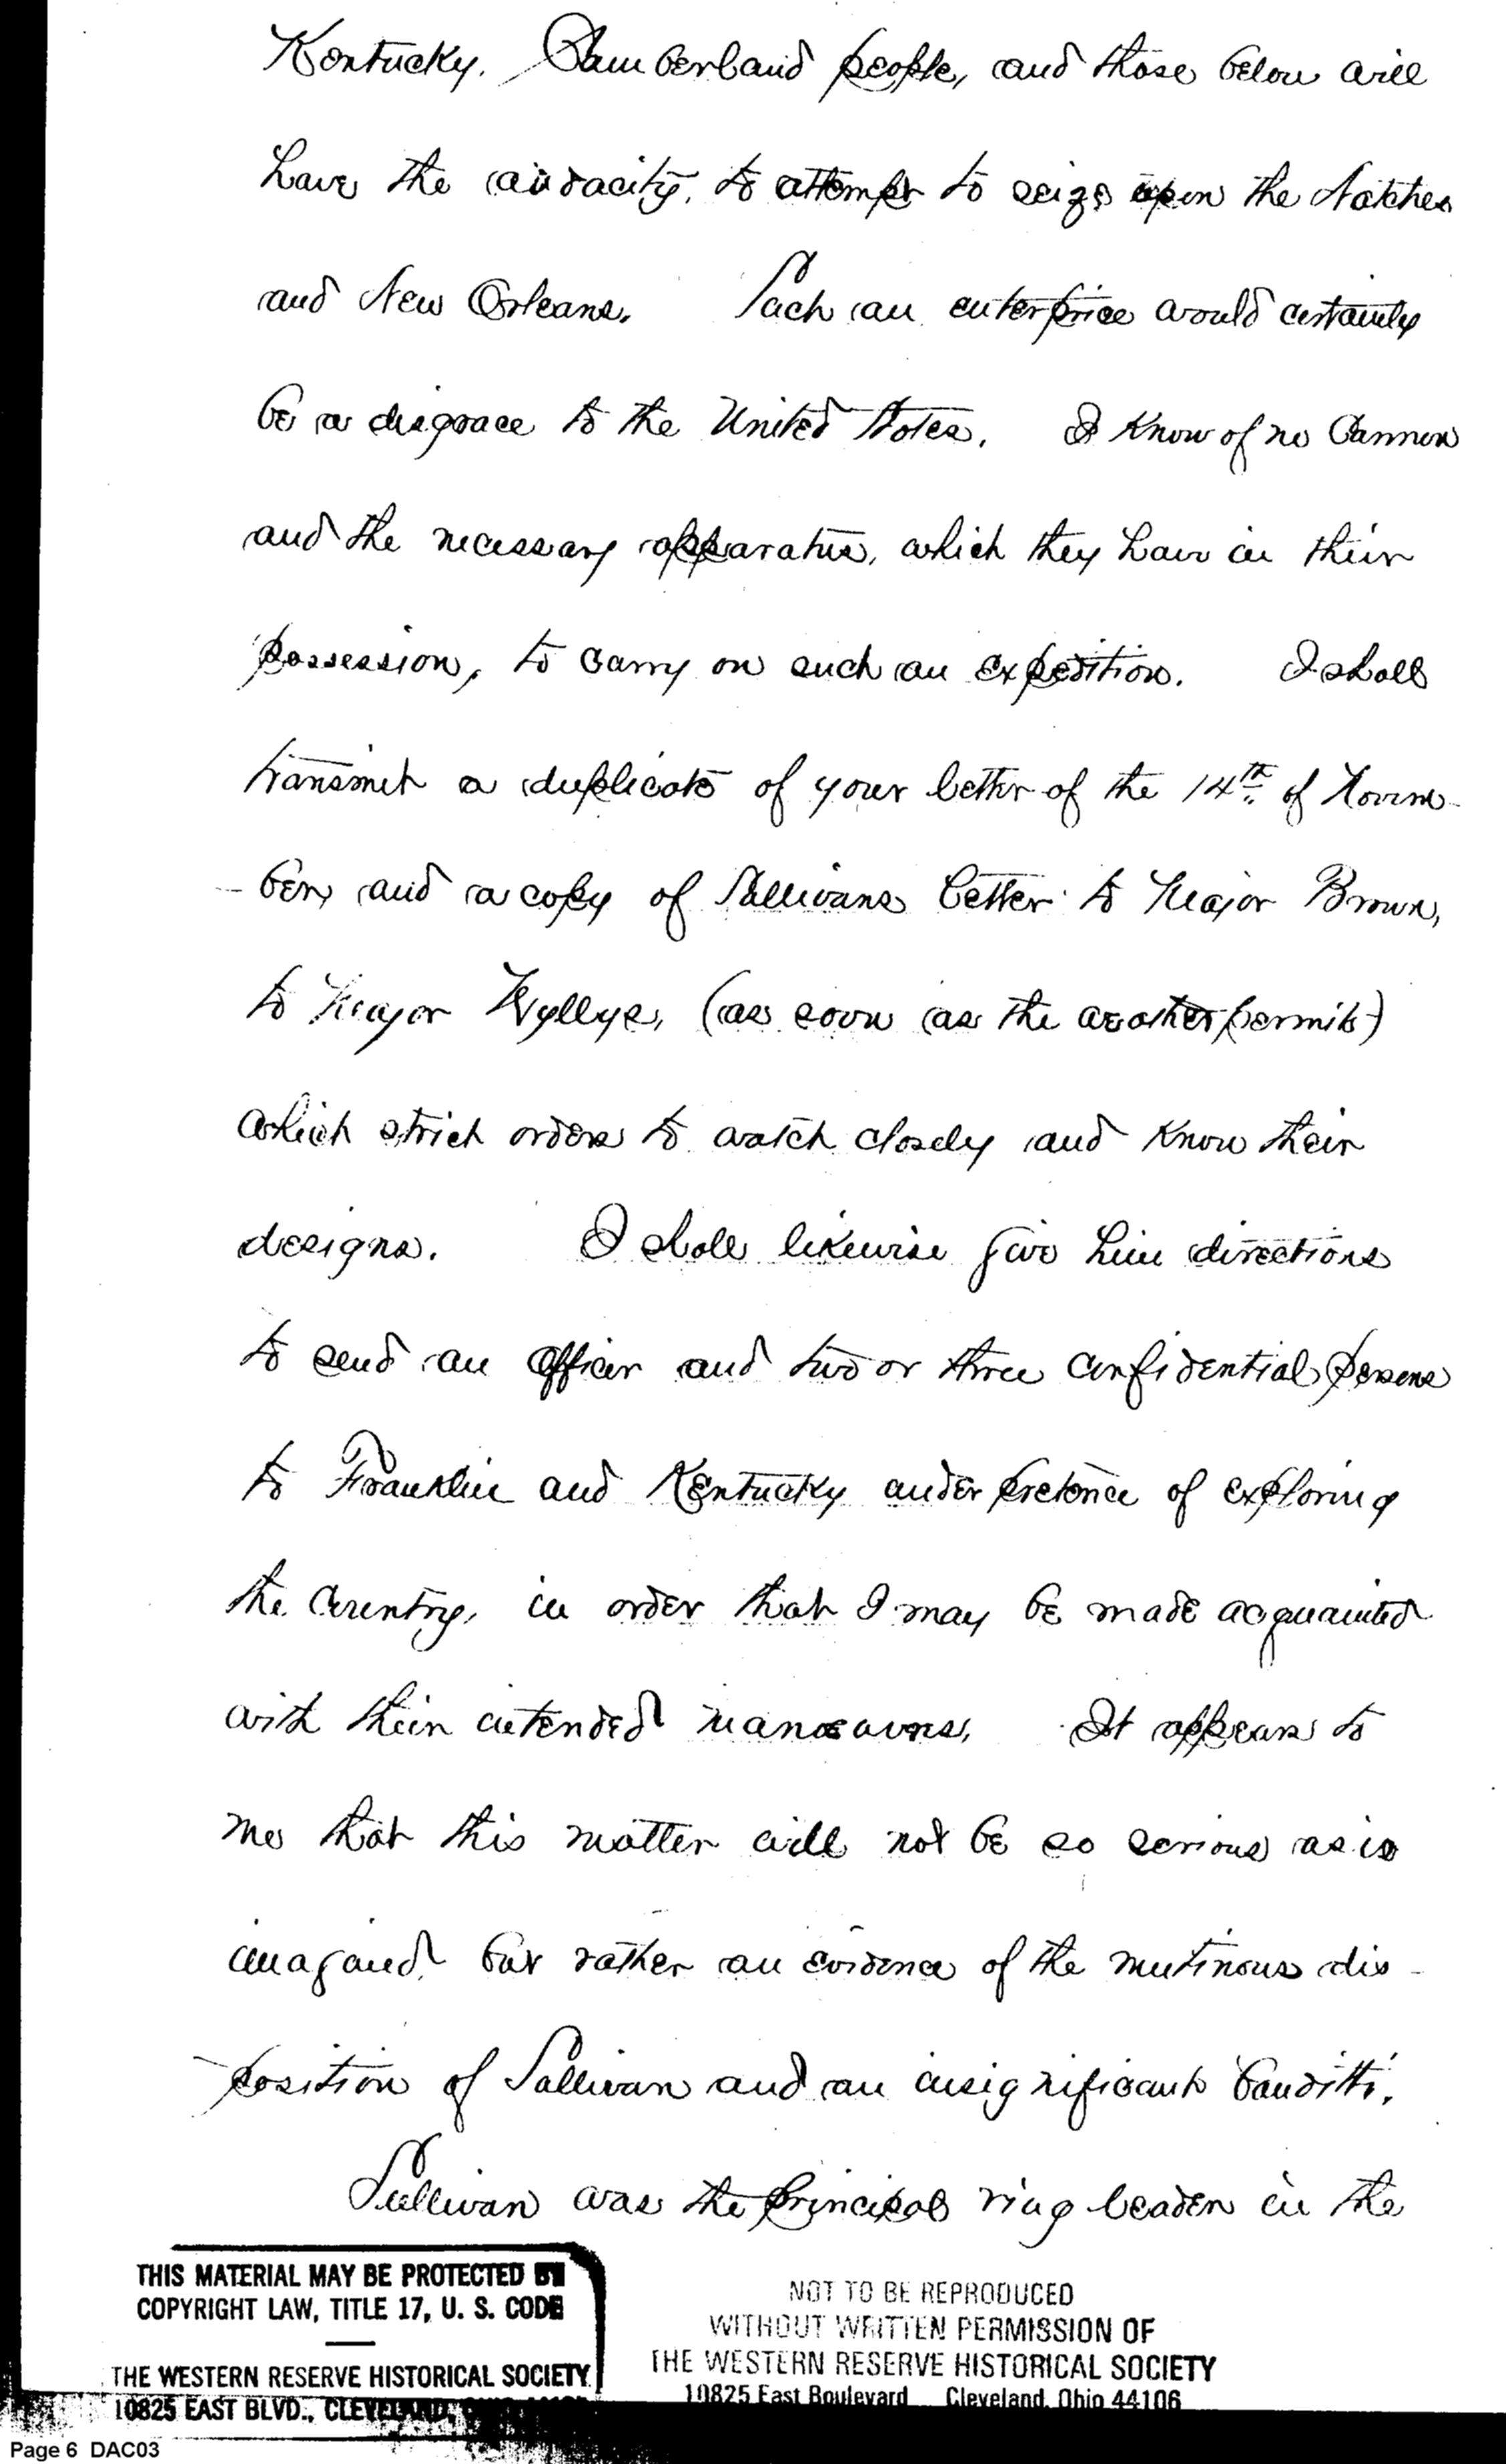 Kentucky. Cumberland people, and those below will
have the audacity, to attempt to seize upon the Natches
and New Orleans. Such an enterprice would certainly
be a disgrace to the United States. I know of no Cannon
and the necessary apparatus, which they have in their
possession, to carry on such an expedition. I shall
transmit a duplicate of your letter of the 14th of Novem-
-ber, and a copy of Sullivans letter to Major Brown,
to Major Wyllys, (as soon as the weather permits)
which strict orders to watch closely and know their
designs. I shall likewise give him directions
to send an officer and two or three confidential persons
to Franklin and Kentucky under pretence of exploring
the Country, in order that I may be made acquainted
with their intended manœuvres. It appears to
me that this matter will not be so serious as is
imagined, but rather an evidence of the mutinous dis-
-position of Sullivan and an insignificant banditti.
Sullivan was the principal ring leader in the
THIS MATERIAL MAY BE PROTECTED BY
COPYRIGHT LAW, TITLE 17, U. S. CODE
THE WESTERN RESERVE HISTORICAL SOCIETY
10825 EAST BLVD., CLEVELAND,
NOT TO BE REPRODUCED
WITHOUT WRITTEN PERMISSION OF
THE WESTERN RESERVE HISTORICAL SOCIETY
10825 East Boulevard Cleveland, Ohio 44106
Page 6 DAC03